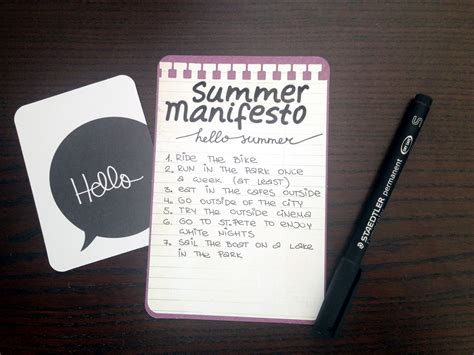 Summer
Manifesto
hello summer
1. RIDE THE BIKE
2. RUN IN THE PARK ONCE
A WEEK (AT LEAST)
3. EAT IN THE CAFES OUTSIDE
4. GO OUTSIDE OF THE CITY
5. TRY THE OUTSIDE CINEMA
6. GO TO ST.PETE TO ENJOY
WHITE NIGHTS
7. SAIL THE BOAT ON A LAKE
IN THE PARK
Hello
STAEDTLER permanent
S